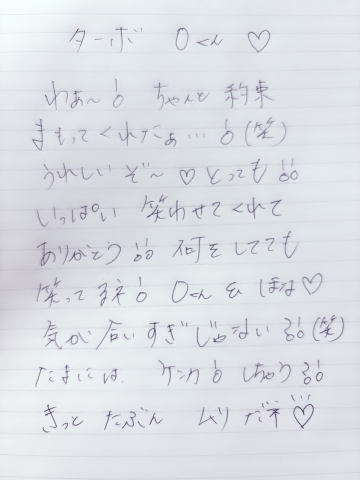 ターボ Oくん ♡
わぁ〜! ちゃんと 約束
まもってくれたぁ…!(笑)
うれしいぞ〜♡とっても!!
いっぱい 笑わせてくれて
ありがとう!! 何をしてても
笑ってるネ! Oくん & ほな♡
気が合いすぎじゃない!?!(笑)
たまには ケンカ! しちゃう!?!
きっと たぶん ムリ だネ!!!♡